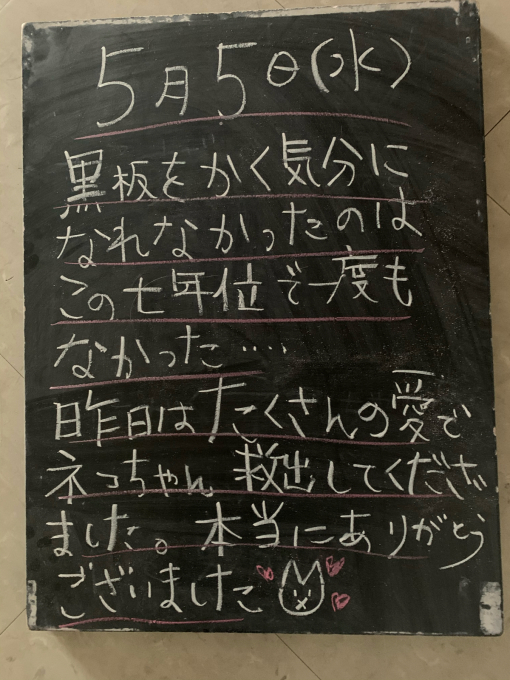 5月5日(水)
黒板をかく気分に
なれなかったのは
この七年位で一度も
なかった‥‥
昨日はたくさんの愛で
ネコちゃん救出してくださ
ました。本当にありがとう
ございました